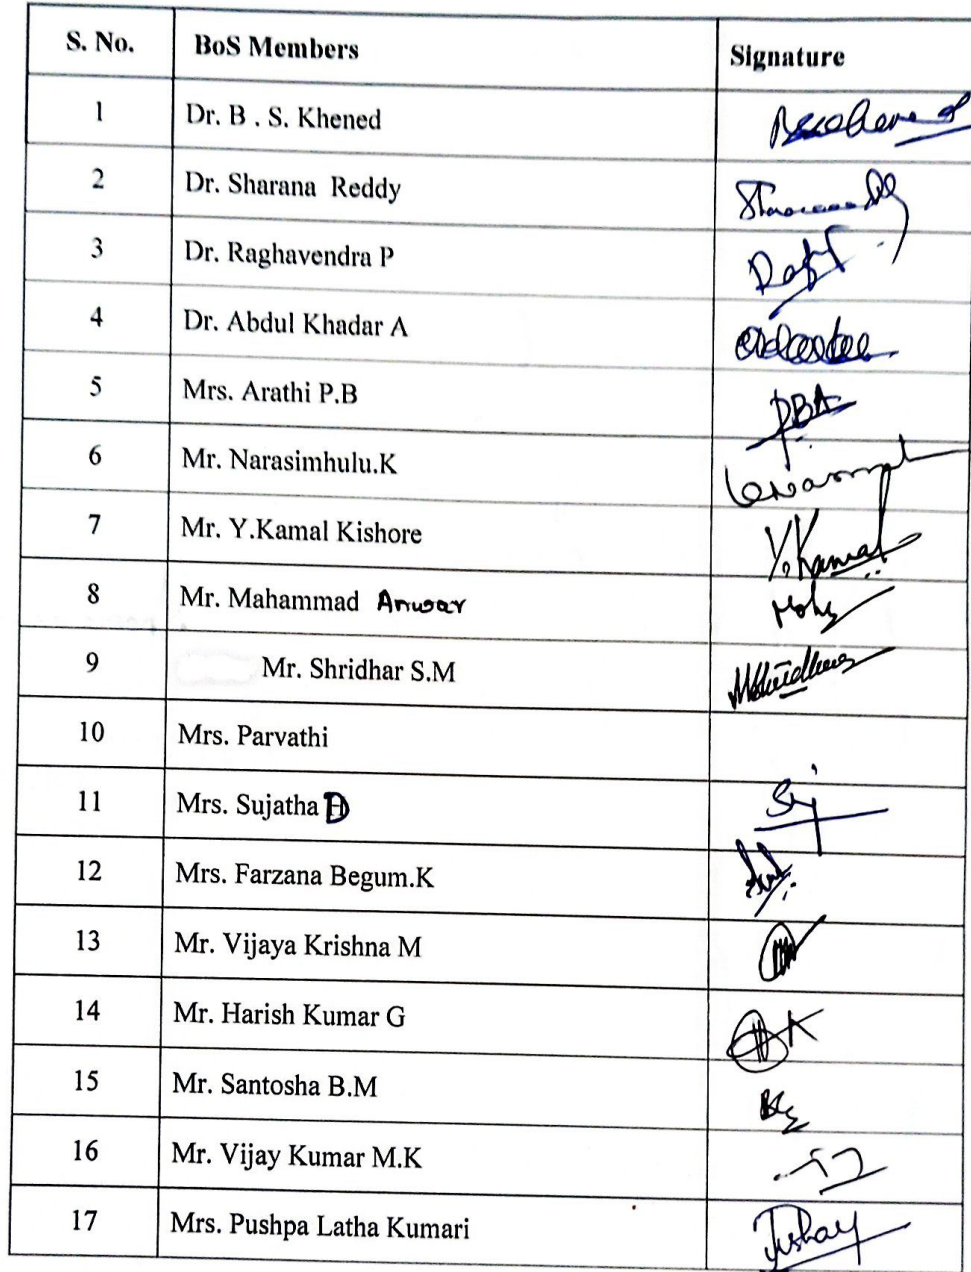 S. No. BoS Members Signature
1 Dr. B . S. Khened
2 Dr. Sharana Reddy
3 Dr. Raghavendra P
4 Dr. Abdul Khadar A
5 Mrs. Arathi P.B PBA
6 Mr. Narasimhulu.K
7 Mr. Y.Kamal Kishore Y.Kamal
8 Mr. Mahammad Anwar
9 Mr. Shridhar S.M
10 Mrs. Parvathi
11 Mrs. Sujatha D Suj
12 Mrs. Farzana Begum.K
13 Mr. Vijaya Krishna M
14 Mr. Harish Kumar G
15 Mr. Santosha B.M
16 Mr. Vijay Kumar M.K
17 Mrs. Pushpa Latha Kumari